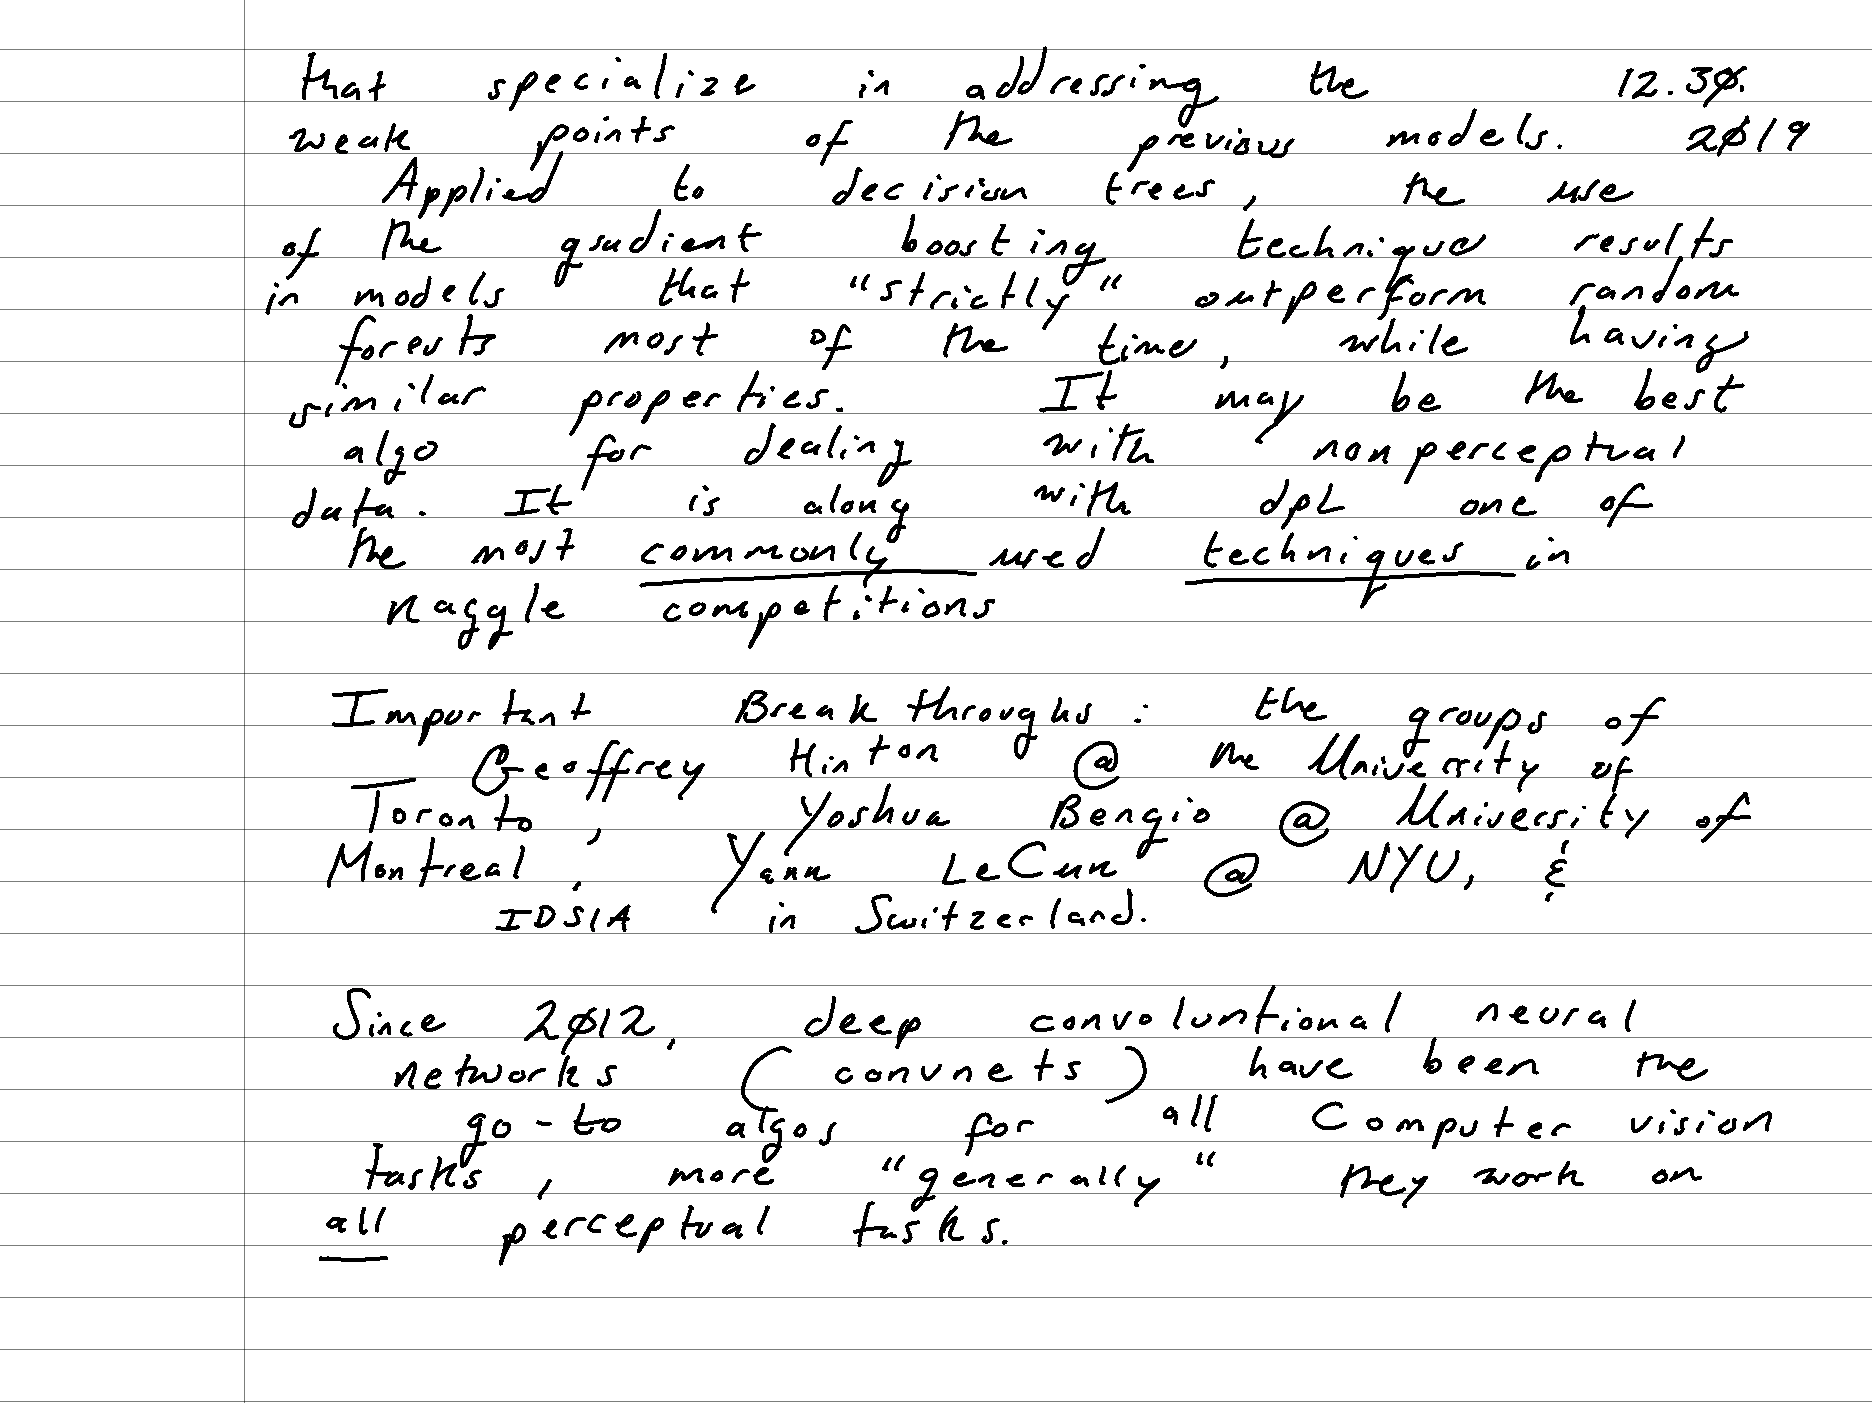 that specialize in addressing the 12.30.
weak points of the previous models. 2019
Applied to decision trees, the use
of the gradient boosting technique results
in models that "strictly" outperform random
forests most of the time, while having
similar properties. It may be the best
algo for dealing with nonperceptual
data. It is along with dpL one of
the most commonly used techniques in
Kaggle competitions
Important Breakthroughs: the groups of
Geoffrey Hinton @ the University of
Toronto, Yoshua Bengio @ University of
Montreal, Yann LeCun @ NYU, &
IDSIA in Switzerland.
Since 2012, deep convoluntional neural
networks (convnets) have been the
go-to algos for all Computer vision
tasks, more "generally" they work on
all perceptual tasks.